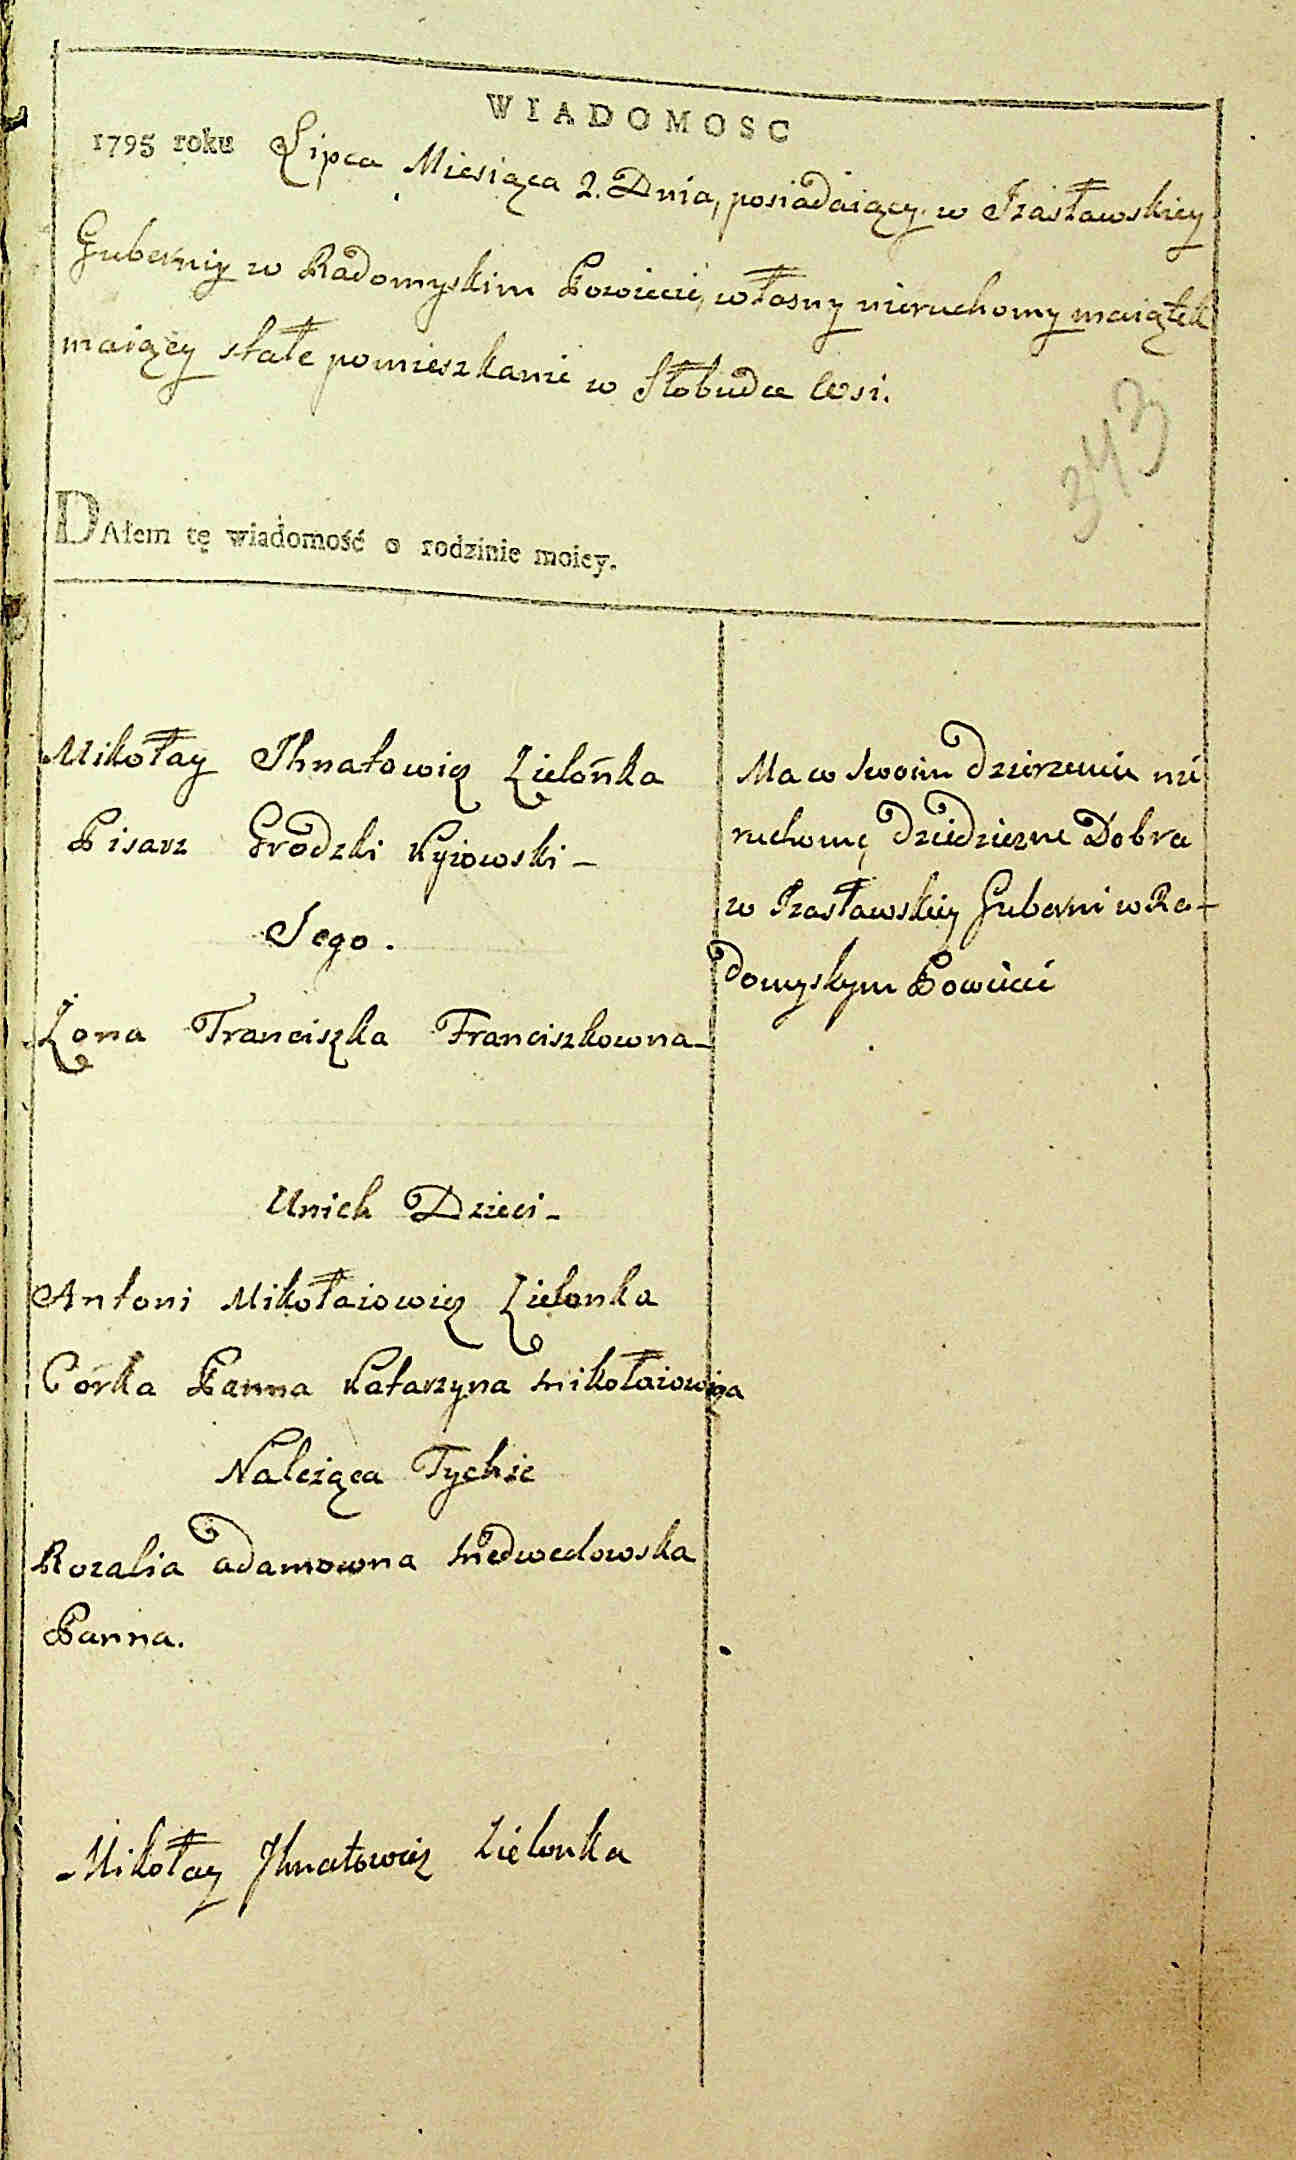 WIADOMOSC
1795 roku Lipca Miesiąca 2. Dnia, posiadaiący w Izasławskiey
Guberniy w Radomyskim Powiecie, własny nieruchomy maiątek
maiący stałe pomieszkanie w Słobudce Wsi.
343
DAłem tę wiadomość o rodzinie moiey.
Mikołay Ihnatowicz Zielońka
Pisarz Grodzki Kyiowski -
Jego.
Żona Franciszka Franciszkowna -
Unich Dzieci -
Antoni Mikołaiowicz Zielonka
Córka Panna Katarzyna Mikołaiowna
Należąca Tychże
Rozalia adamowna Medwedowska
Panna.
Mikołay Ihnatowicz Zielonka
Ma w Swoim Dzierzeniu nie
ruchomę Dziedziczne Dobra
w Izasławskiey Guberni w Ra-
domyskym Powiecie